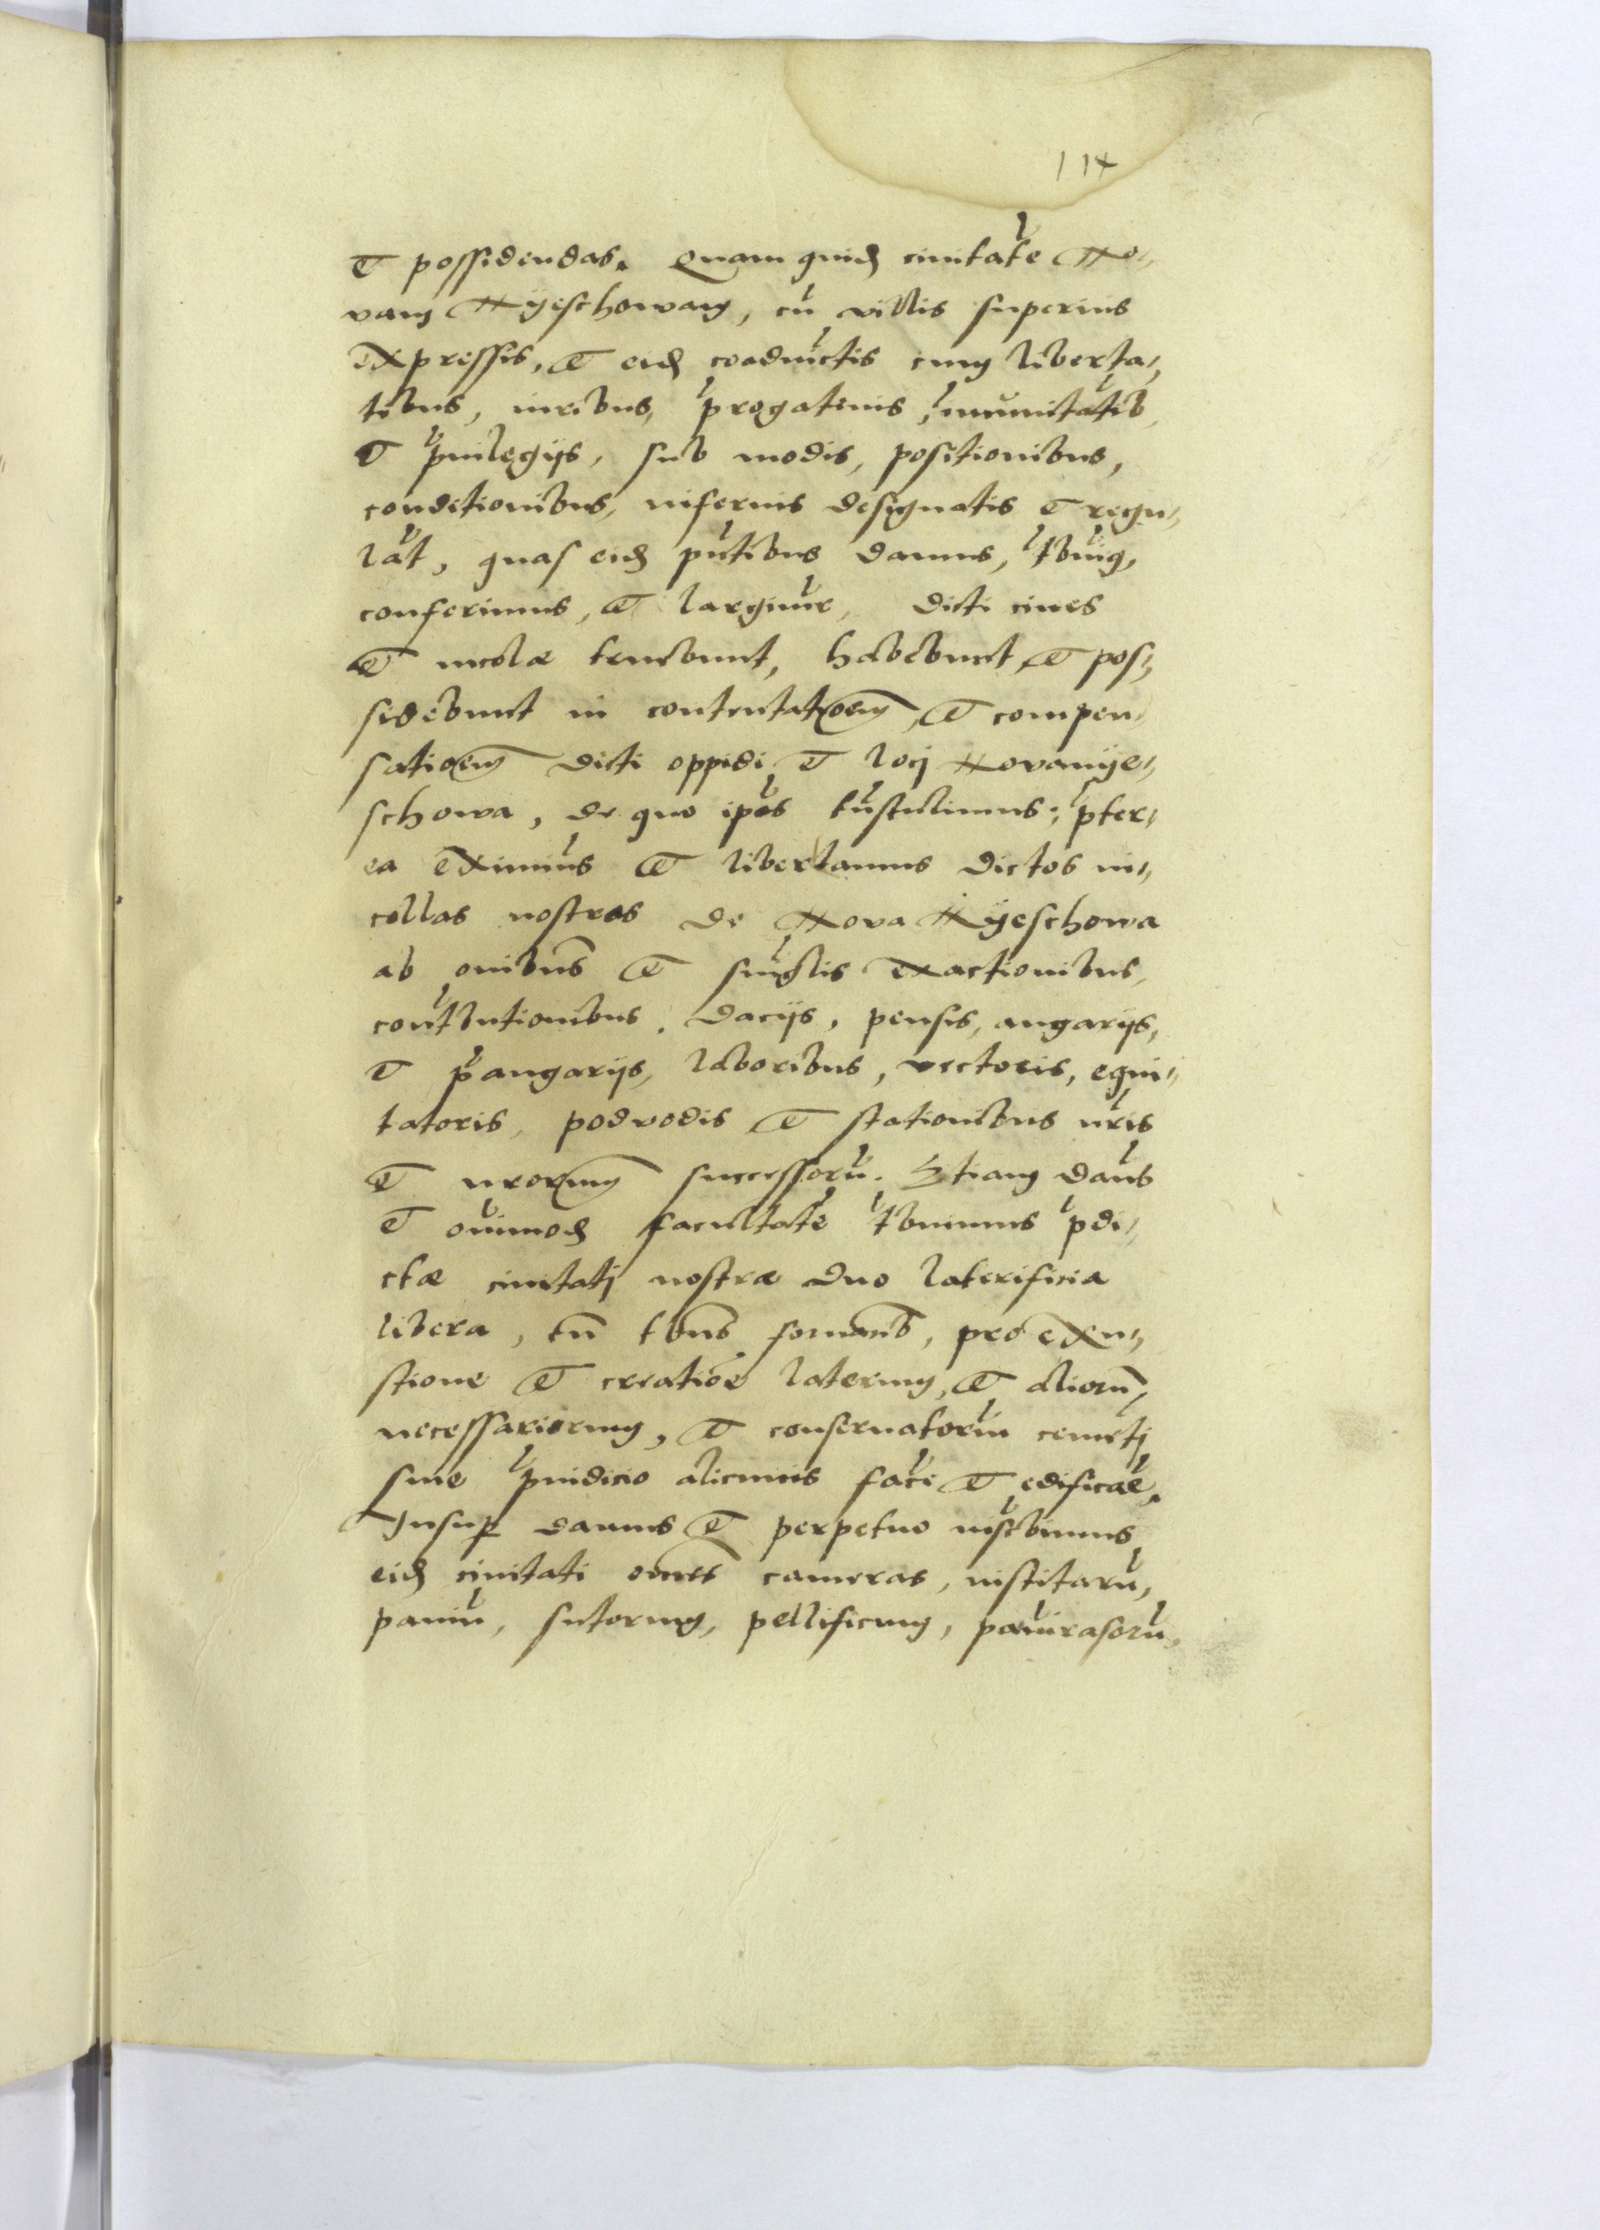 114
et possidendas. Quam quid civitatē No-
vam Nyeschowam, cū villis superius
expressis, et eid coadūctis cum liberta-
tibus, iuribus, progativis, īmunitatib
et pvilegijs, sub modis, positionibus,
conditionibus, inferius designatis et regu-
lat, quas eid pn̄tibus damus, tbuīq,
conferimus, et largimur, dicti cives
et incolæ tenebunt, habebunt, et pos-
sidebunt in contentatoem, et compen-
satioem dicti oppidi et locj Novanye-
schowa, de quo ipos tustulimus; pter-
ea eximius et libertamus dictos in-
collas nostros de Nova Nyeschowa
ab onibus et singlis exactionibus,
contbutionibus, dacijs, pensis, angarijs,
et pangarijs, laboribus, vectoris, equi-
tatoris, podvodis et stationibus nris
et nrorum successorū. Etiam dam9
et oimod facultatē tbuimus pdi-
ctæ civitatj nostræ duo laterificia
libera, cū tbus fornacib, pro exu-
stione et creatioe laterum, et aliorū
necessariorum, et conservatoriū cemetj
sine pīudicio alicuius face et edificae.
Insup damus et perpetuo inscbimus
eid civitati omes cameras, institarū,
paniū, sutorum, pellificum, pannirasorū,